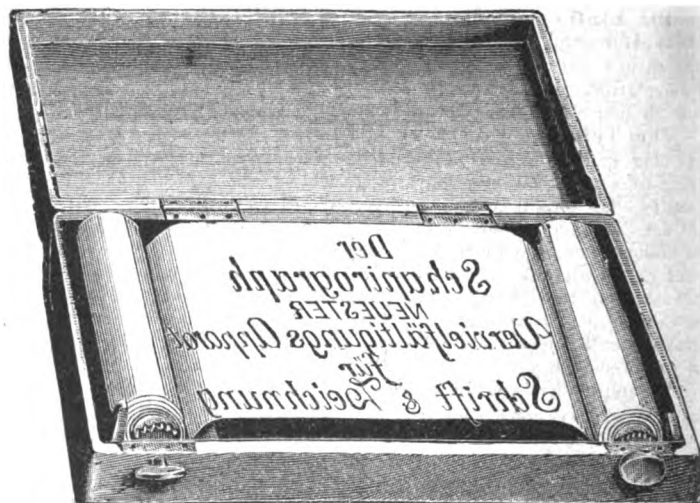 Der
Schapirograph
NEUESTER
Vervielfältigungs Apparat
für
Schrift & Zeichnung